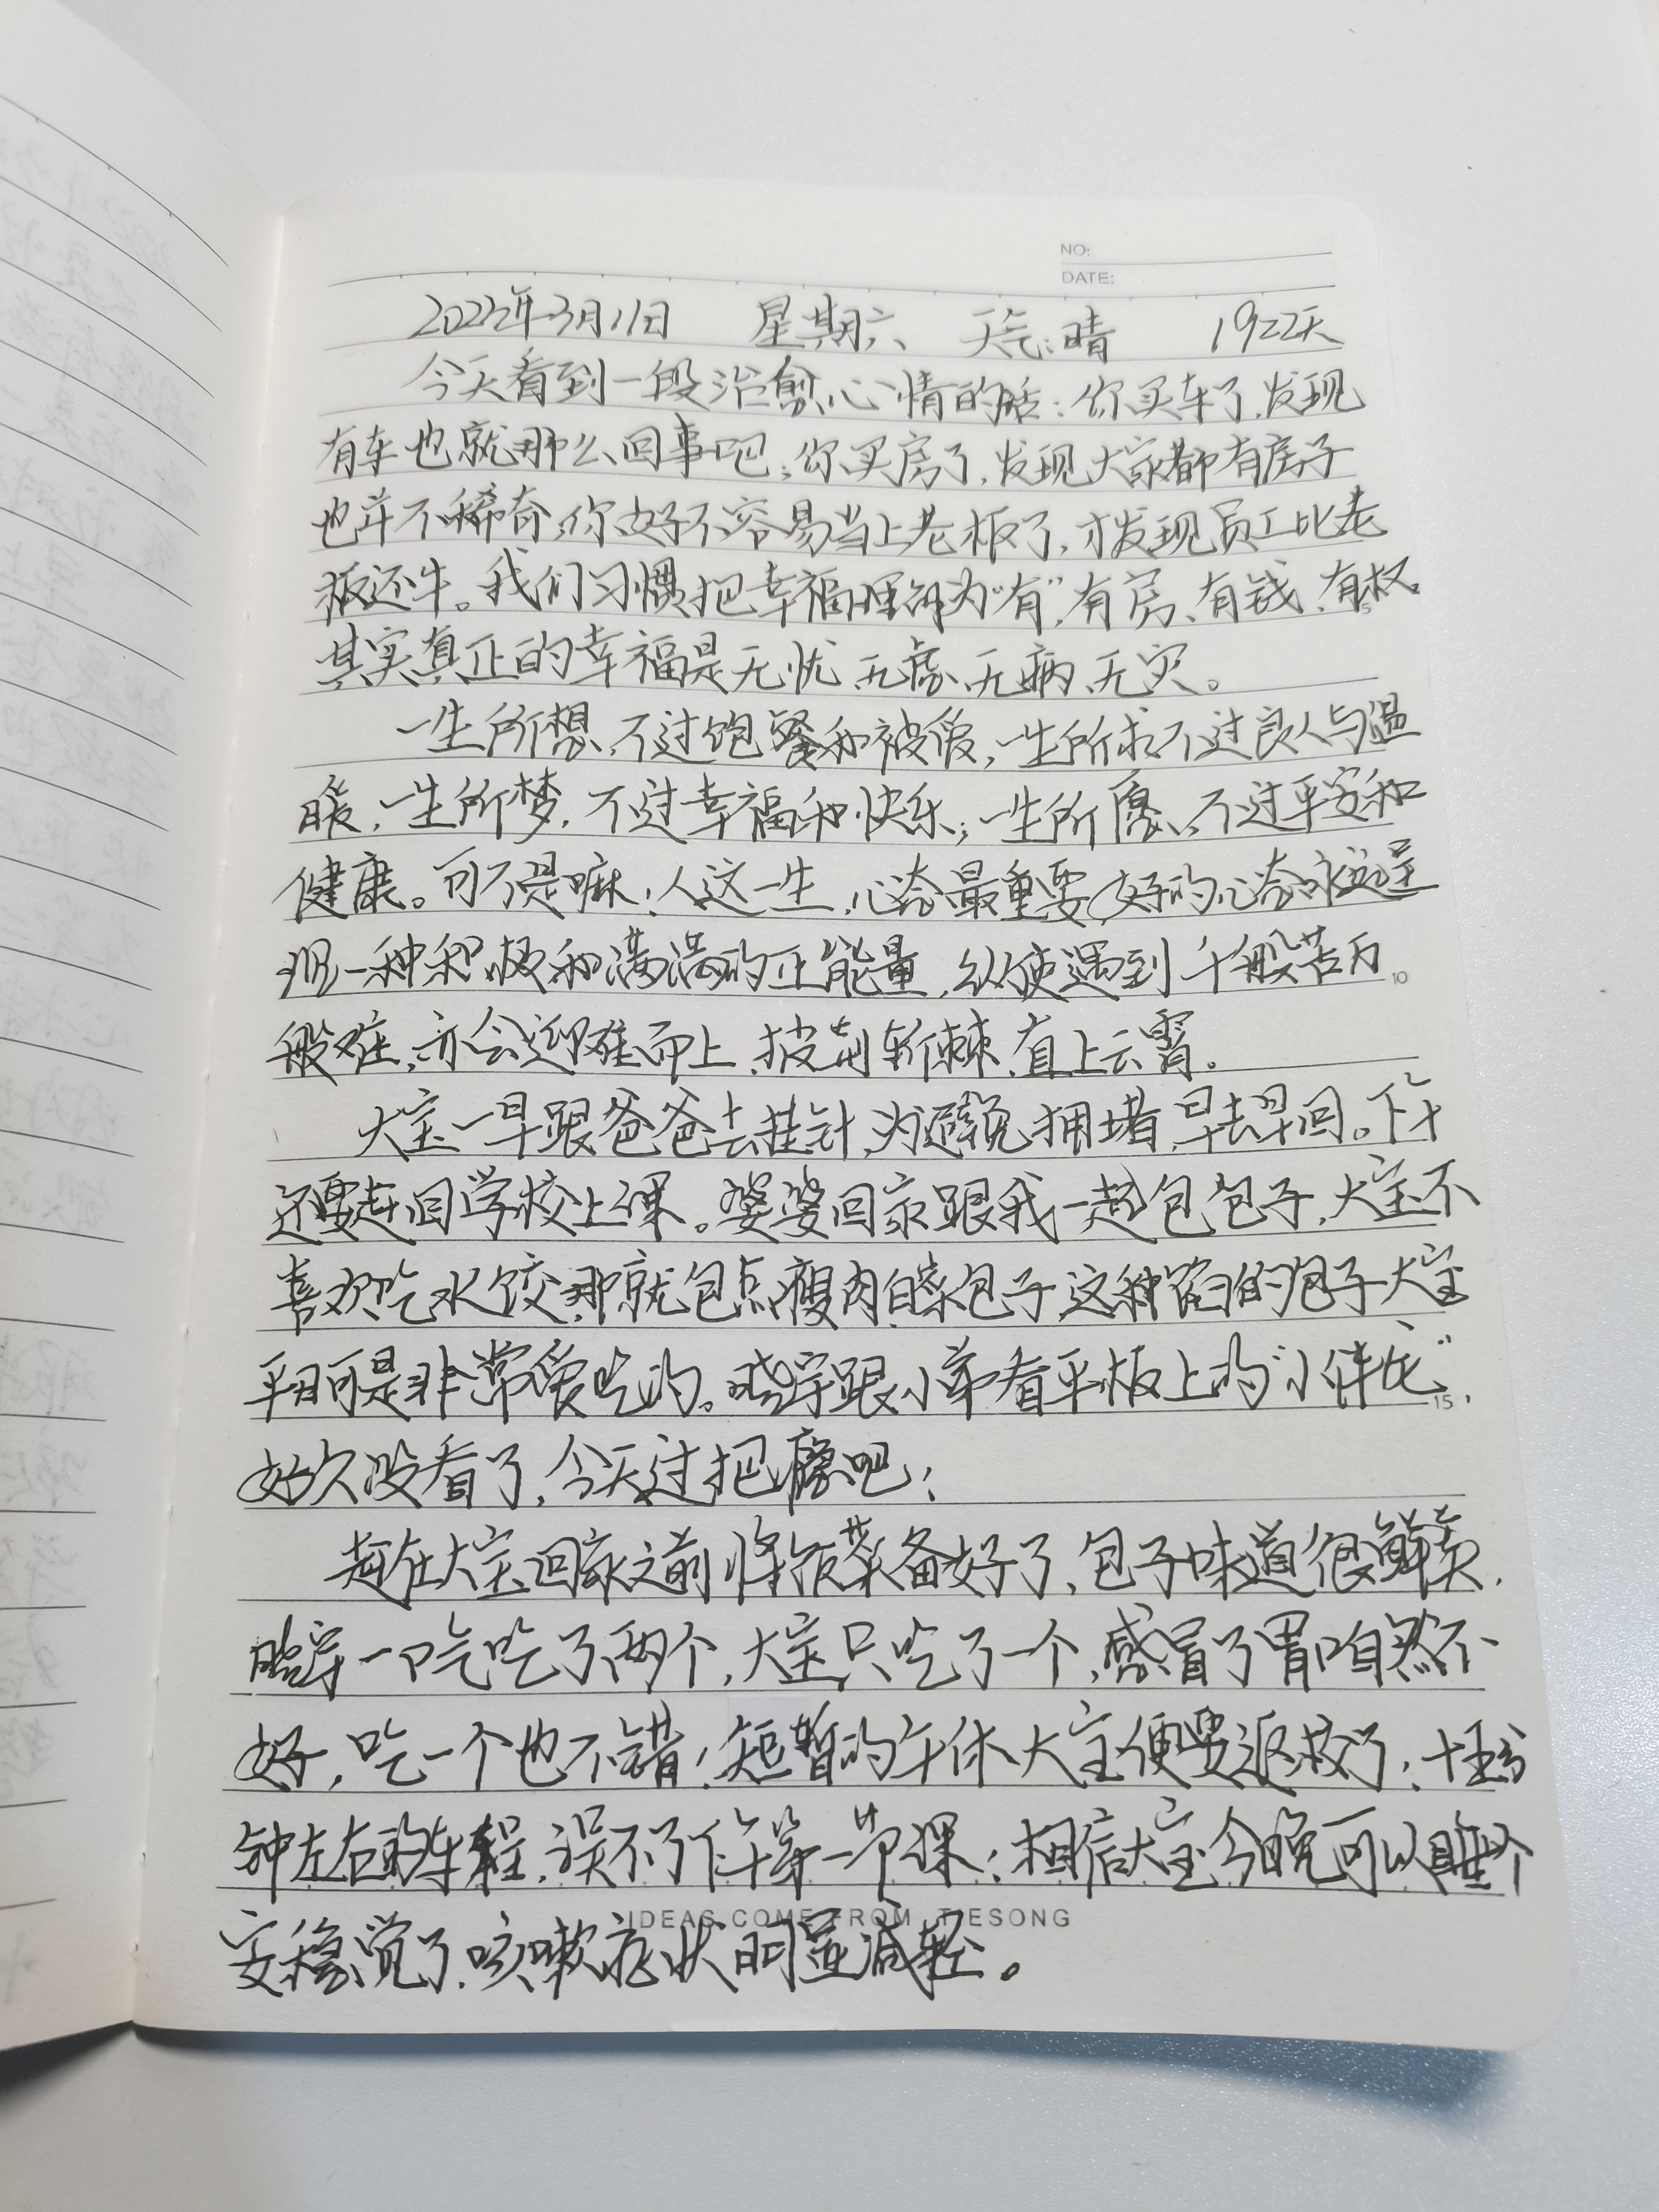 NO:
DATE:
2023年3月11日 星期六 天气:晴 1922天
今天看到一段治愈心情的话:你买车了,发现
有车也就那么回事吧;你买房了,发现大家都有房子
也并不稀奇;你好不容易当上老板了,才发现员工比老
板还牛。我们习惯把幸福理解为“有”,有房、有钱、有权。
5
其实真正的幸福是无忧、无虑、无病、无灾。
一生所想,不过饱餐和被爱,一生所求不过良人与温
暖,一生所梦,不过幸福和快乐;一生所愿,不过平安和
健康。可不是嘛!人这一生,心态最重要,好的心态永远呈
现一种积极和满满的正能量,纵使遇到千般苦万
10
般难,亦会迎难而上,披荆斩棘,直上云霄。
大宝一早跟爸爸去挂针,为避免拥堵,早去早回。下午
还要赶回学校上课。婆婆回家跟我一起包包子,大宝不
喜欢吃水饺,那就包点瘦肉白菜包子,这种馅的包子大宝
平日可是非常爱吃的。晓宇跟小弟看平板上的“小伴龙”
15
好久没看了,今天过把瘾吧!
赶在大宝回家之前将饭菜备好了,包子味道很鲜美,
晓宇一口气吃了两个,大宝只吃了一个,感冒了胃口自然不
好,吃一个也不错!短暂的午休大宝便要返校了,十来分
钟左右的车程,误不了下午第一节课!相信大宝今晚可以睡个
IDEAS COME FROM TIESONG
安稳觉了,咳嗽症状明显减轻。